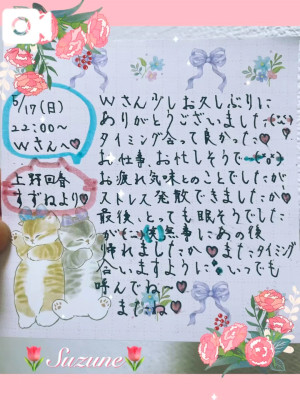 5/17(日)
22:00〜
Wさんへ♥
上野回春
すずねより♥
Wさん少しお久しぶりに
ありがとうございました(ニニ)
タイミング合って良かった♡
お仕事、お忙しそうで
お疲れ気味とのことでしたが
ストレス発散できましたか♥
最後、とっても眠そうでした
が 無事にあの後
帰れましたか♥またタイミング
合いますように いつでも
呼んでね♥
またね♥
🌷Suzune🌷